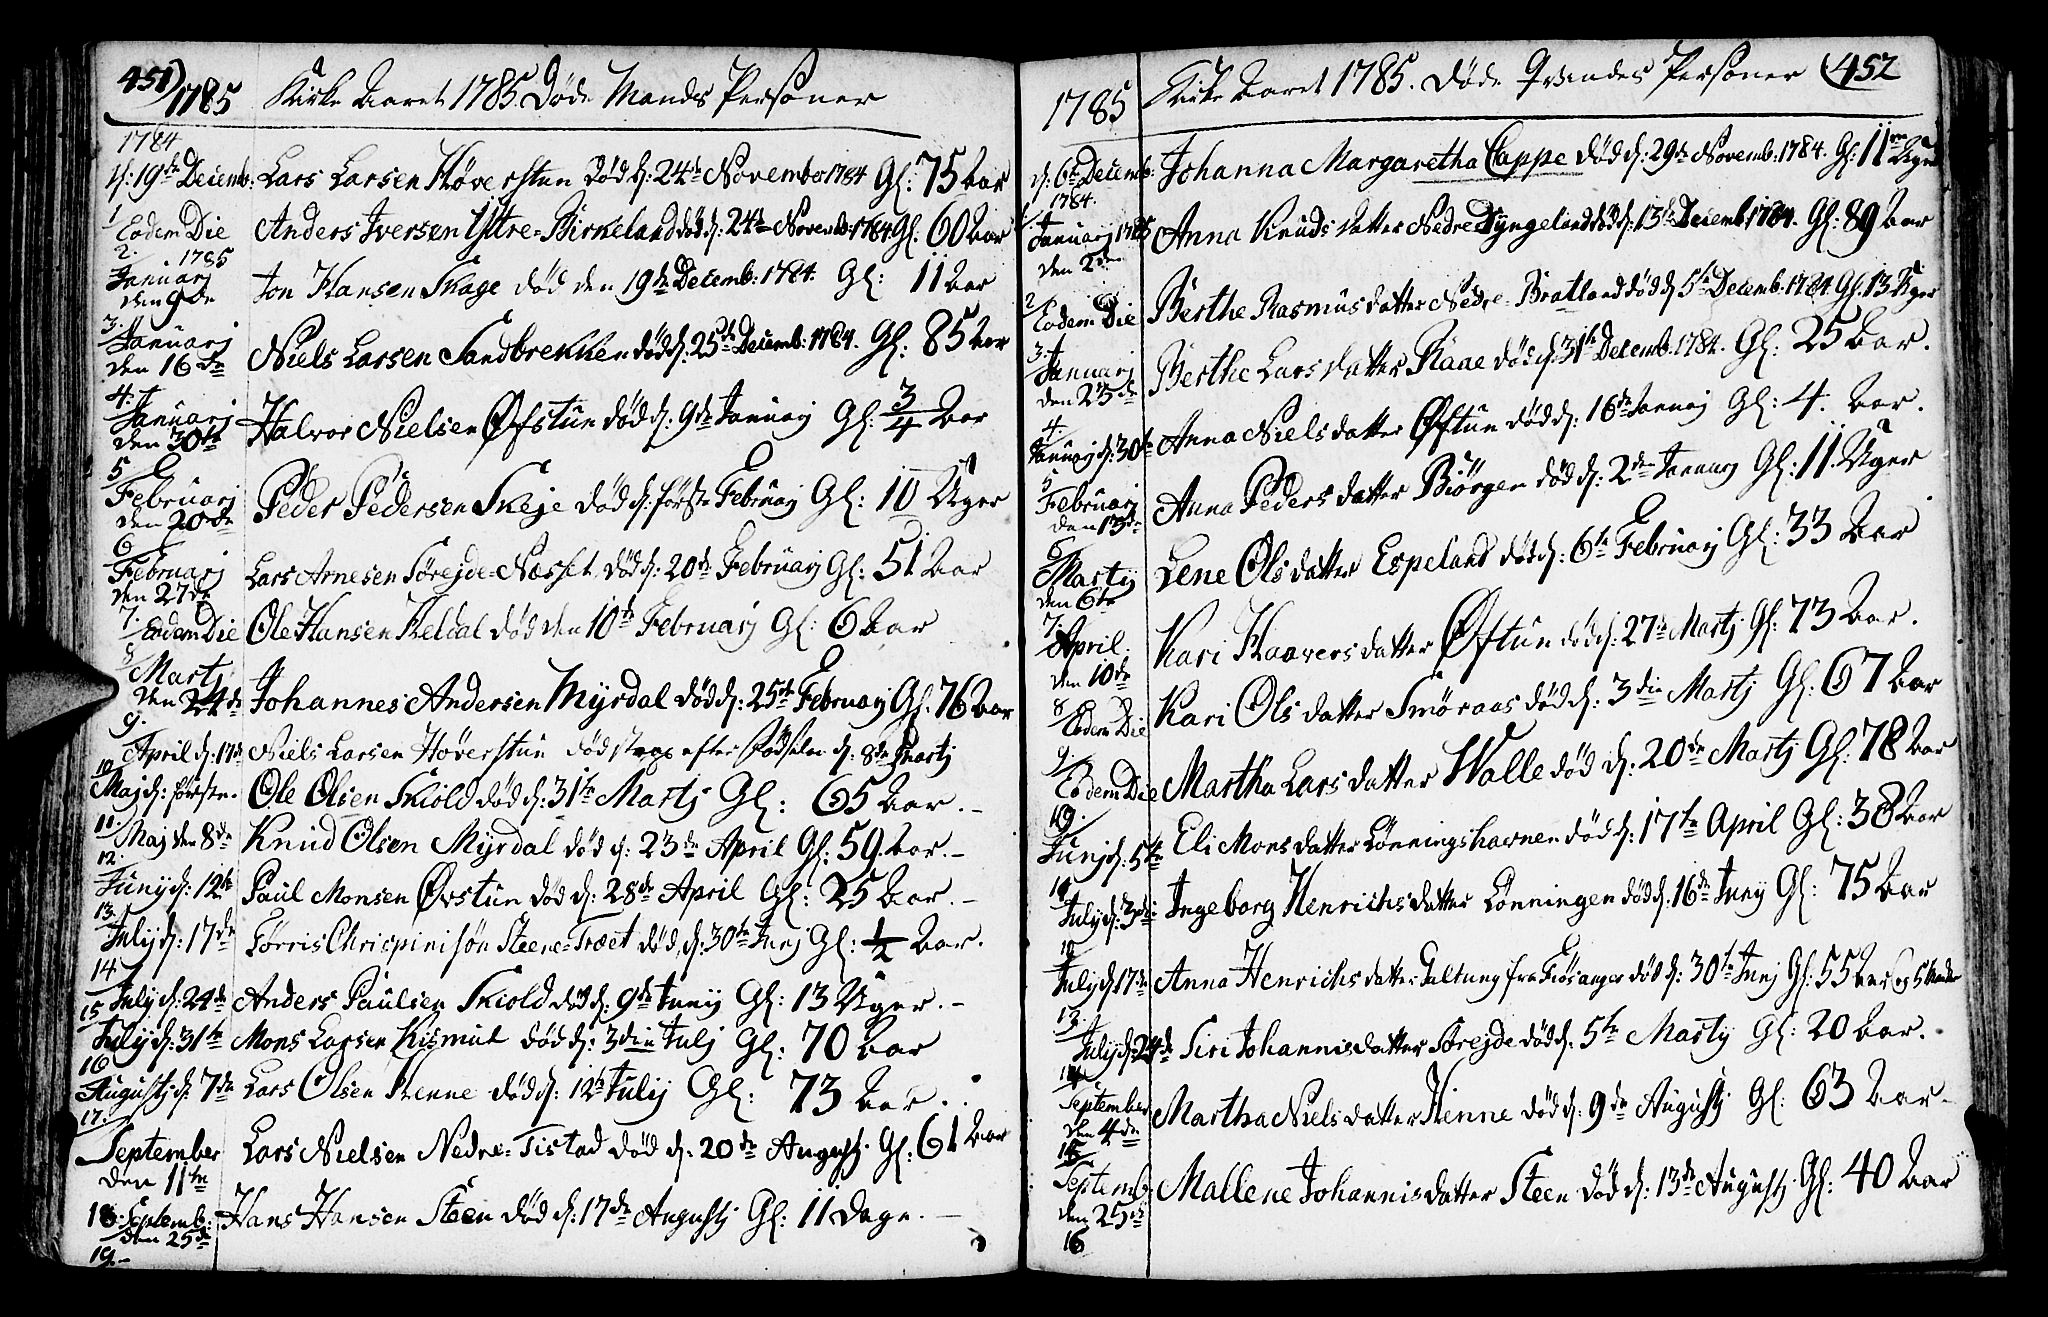 451) 1785 Kirke Aaret 1785. Døde Mands Personer
1784
d: 19de Decemb: Lars Larsen Høversten død d: 24de Novembr 1784 Gl: 75 Aar
1.
Eodem Die Anders Iversen Ystre-Birkeland død d: 24de Novemb: 1784 Gl: 60 Aar
2. 1785
Januarj den 9de Jon Hansen Skage død den 19de Decemb: 1784. Gl: 11 Aar
3.
Januarj den 16de Niels Larsen Sandbrekken død d: 25de Decemb: 1784. Gl: 85 Aar
4.
Januarj den 30te Halvor Nielsen Øfstun død d: 9de Januarj Gl: 3/4 Aar
5
Februarj den 20de Peder Pedersen Skeje død d: første Februarj Gl: 10 Uger
6.
Februarj den 27de Lars Arnesen Sørejde-Næsset død d: 20de Februarj Gl: 51 Aar
7.
Eodem Die Ole Hansen Reldal død den 10de Februarj Gl: 6 Aar
8
Martj den 24de Johannes Andersen Myrdal død d: 25de Februarj Gl: 76 Aar
9.
April d: 17de Niels Larsen Høverstun død strax efter Fødselen d: 8de Martj
10
Maj d: første. Ole Olsen Skiold død d: 31te Martj Gl: 65 Aar.
11.
Maj den 8de Knud Olsen Myrdal død d: 23de April Gl: 59 Aar.
12.
Junij d: 12te Paul Monsen Øvstun død d: 28de April Gl: 25 Aar.
13.
Julij d: 17de Torris Chrispinisøn Steene-Træet død d: 30te Junj Gl: 1/2 Aar.
14
Julij d: 24de Anders Paulsen Skiold død d: 9de Junij Gl: 13 Uger.
15
Julij d: 31te Mons Larsen Kismul død d: 3die Julj Gl: 70 Aar
16
Augustj d: 7de Lars Olsen Henne død d: 12te Julij Gl: 73 Aar.
17.
September den 11te Lars Nielsen Nedre-Tistad død d: 20de Augustj Gl: 61 Aar
18. Septemb: den 25de Hans Hansen Steen død d: 17de Augustj Gl: 11 Dage.
19.
1785 Kirke Aaret 1785. Døde Qvindes Personer (452
d: 6te Decemb: 1784. Johanna Margaretha Cappe død d: 29de Novemb: 1784. Gl: 11 Uger
1
Januarj 1785 den 2den Anna Knuds datter Nedre Tyngeland død d: 13de Decemb 1784. Gl: 89 Aar
2
Eodem Die Berthe Rasmusdatter Nedre-Bratland død d 5te Decemb: 1784. Gl: 13 Uger
3.
Januarj den 23de Berthe Larsdatter Raae død d: 31te Decemb. 1784. Gl: 25 Aar.
4.
Januarj d: 30te Anna Nielsdatter Øftun død d: 16de Januarj Gl: 4. Aar.
5
Februarj den 13de Anna Pedersdatter Biørgen død d: 2den Januarj Gl: 11. Uger
6
Martij den 6te Lene Olsdatter Espeland død d: 6te Februarj Gl: 33 Aar
7.
April. den 10de Kari Haaversdatter Øftun død d: 27de Martj Gl: 73 Aar.
8
Eodem Die Kari Ols datter Smøraas død d: 3die Martj Gl: 67 Aar
9
Eodem Die Martha Larsdatter Walle død d: 20de Martj Gl: 78 Aar
10.
Junj d: 5te Eli Monsdatter Lønningshavnen død d: 17te April Gl: 38 Aar
11
Julij d: 3die Ingeborg Henrichsdatter Lønningen død d: 16de Junij Gl: 75 Aar
12
Julij d 17de Anna Henrichsdatter Galtung fra Fiøsanger død d: 30te Junj Gl: 55 Aar og 5
13.
Julij d: 24de Siri Johannisdatter Sørejde død d: 5te Martij Gl: 20 Aar.
14
September den 4de Martha Nielsdatter Henne død d: 9de Augustj Gl: 63 Aar
15
Septemb: den 25de Mallene Johannisdatter Steen død d: 13de Augustj Gl: 40 Aar
16